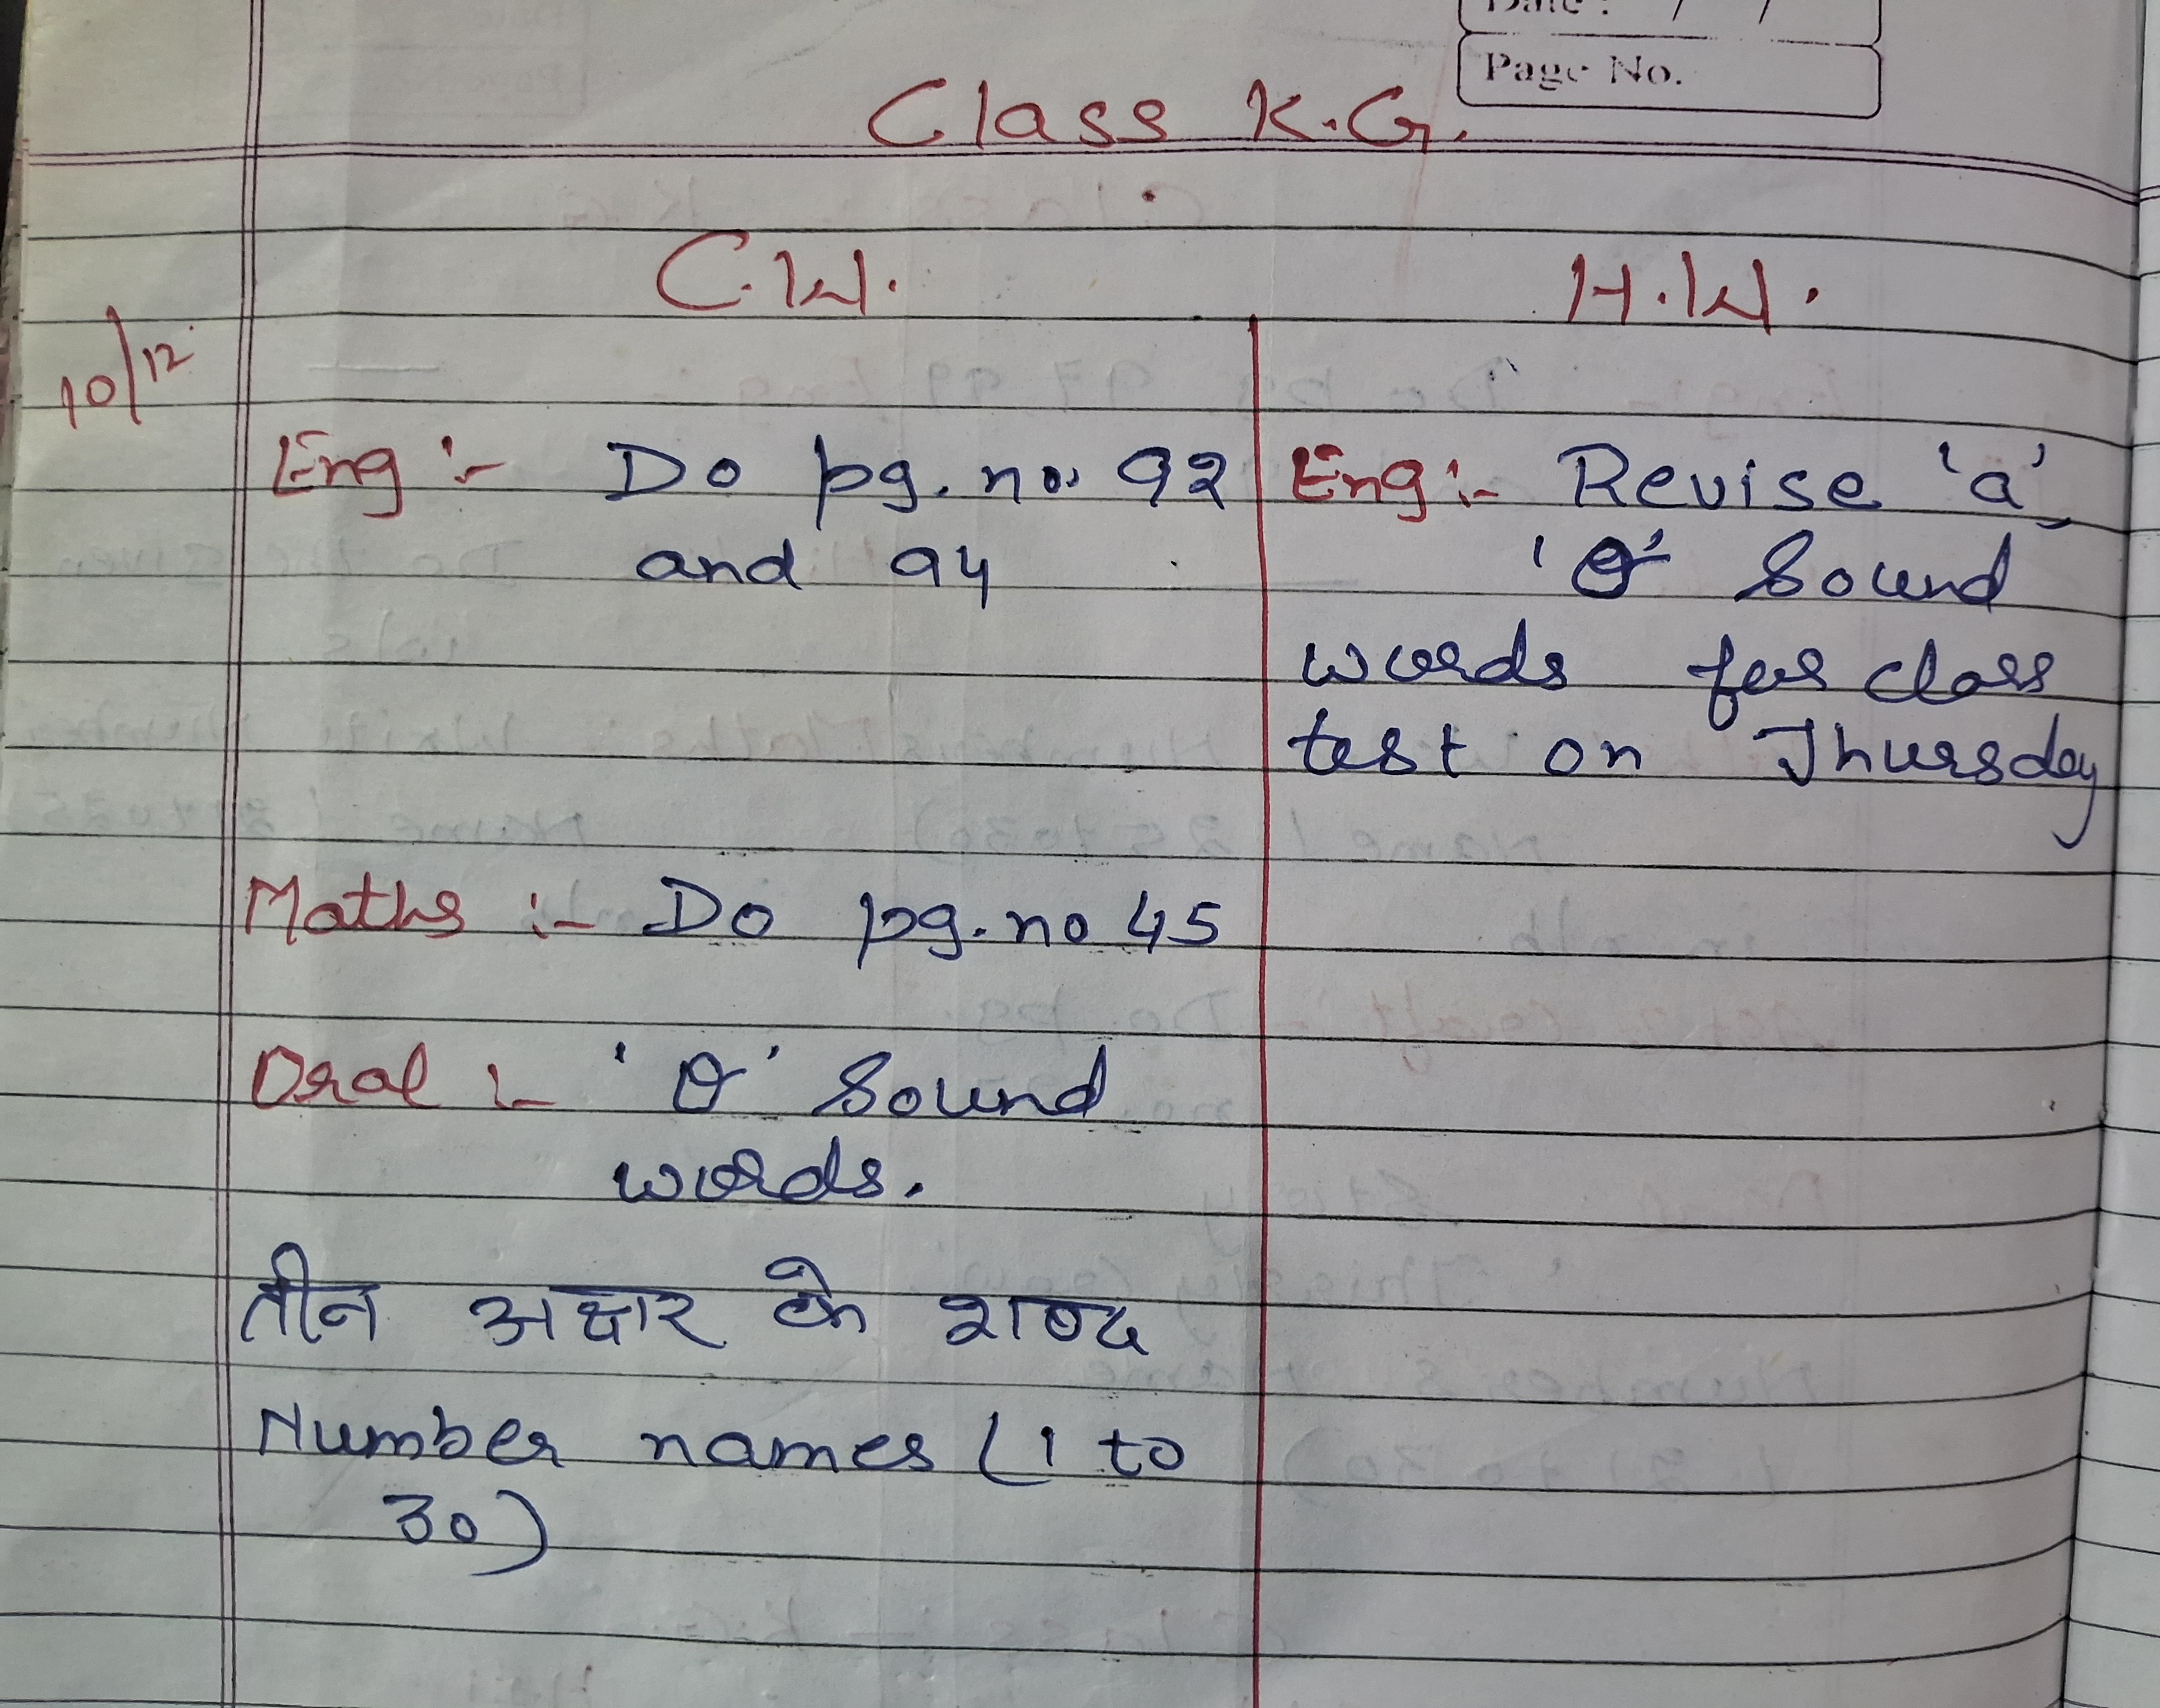 Date : / /
Page No.
Class K.G.
C.W.
H.W.
10/12
Eng :- Do pg. no. 92
and 94
Maths :- Do pg. no 45
Oral :- 'O' Sound
words.
तीन अक्षर के शब्द
Number names (1 to
30)
Eng :- Revise 'a',
'O' Sound
words for class
test on Thursday